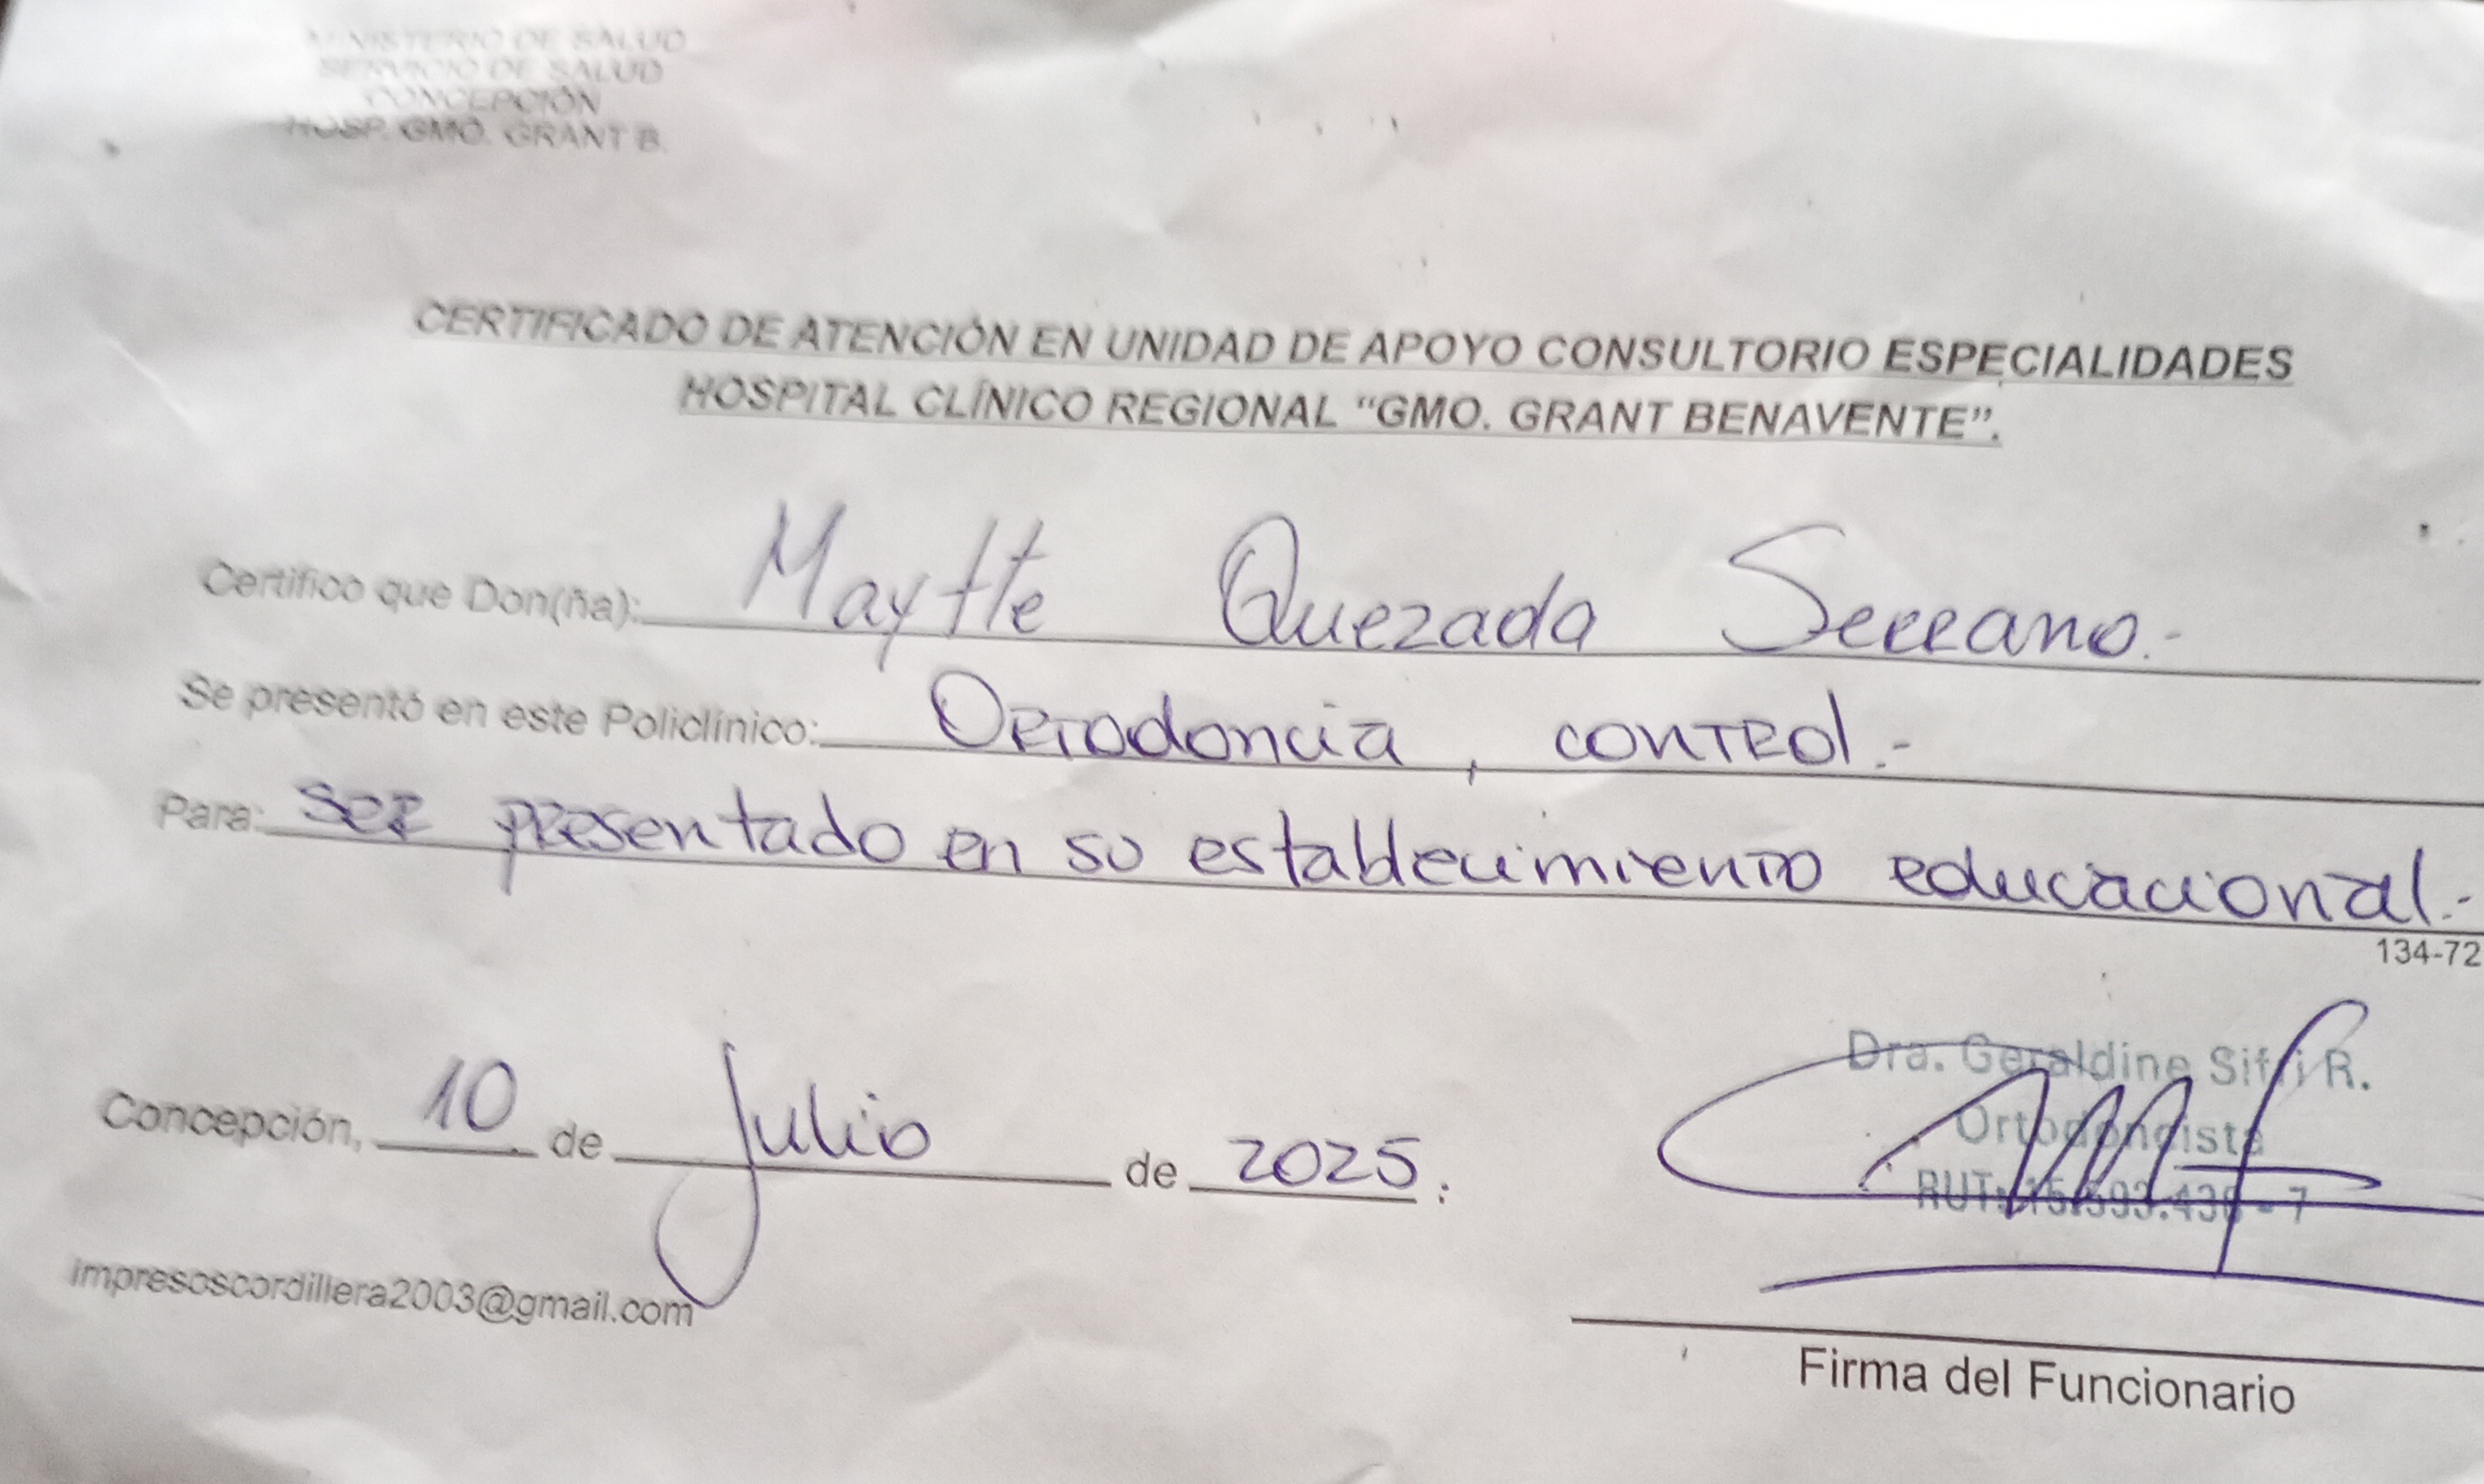 MINISTERIO DE SALUD
SERVICIO DE SALUD
CONCEPCIÓN
HOSP. GMO. GRANT B.
CERTIFICADO DE ATENCIÓN EN UNIDAD DE APOYO CONSULTORIO ESPECIALIDADES
HOSPITAL CLÍNICO REGIONAL “GMO. GRANT BENAVENTE”.
Certifico que Don(ña): Maytte Quezada Serrano.-
Se presentó en este Policlínico: Ortodoncia, control.-
Para: ser presentado en su establecimiento educacional.-
134-72
Concepción, 10 de Julio de 2025.
Dra. Geraldine R.
Ortodoncista
RUT:
impresoscordillera2003@gmail.com
Firma del Funcionario